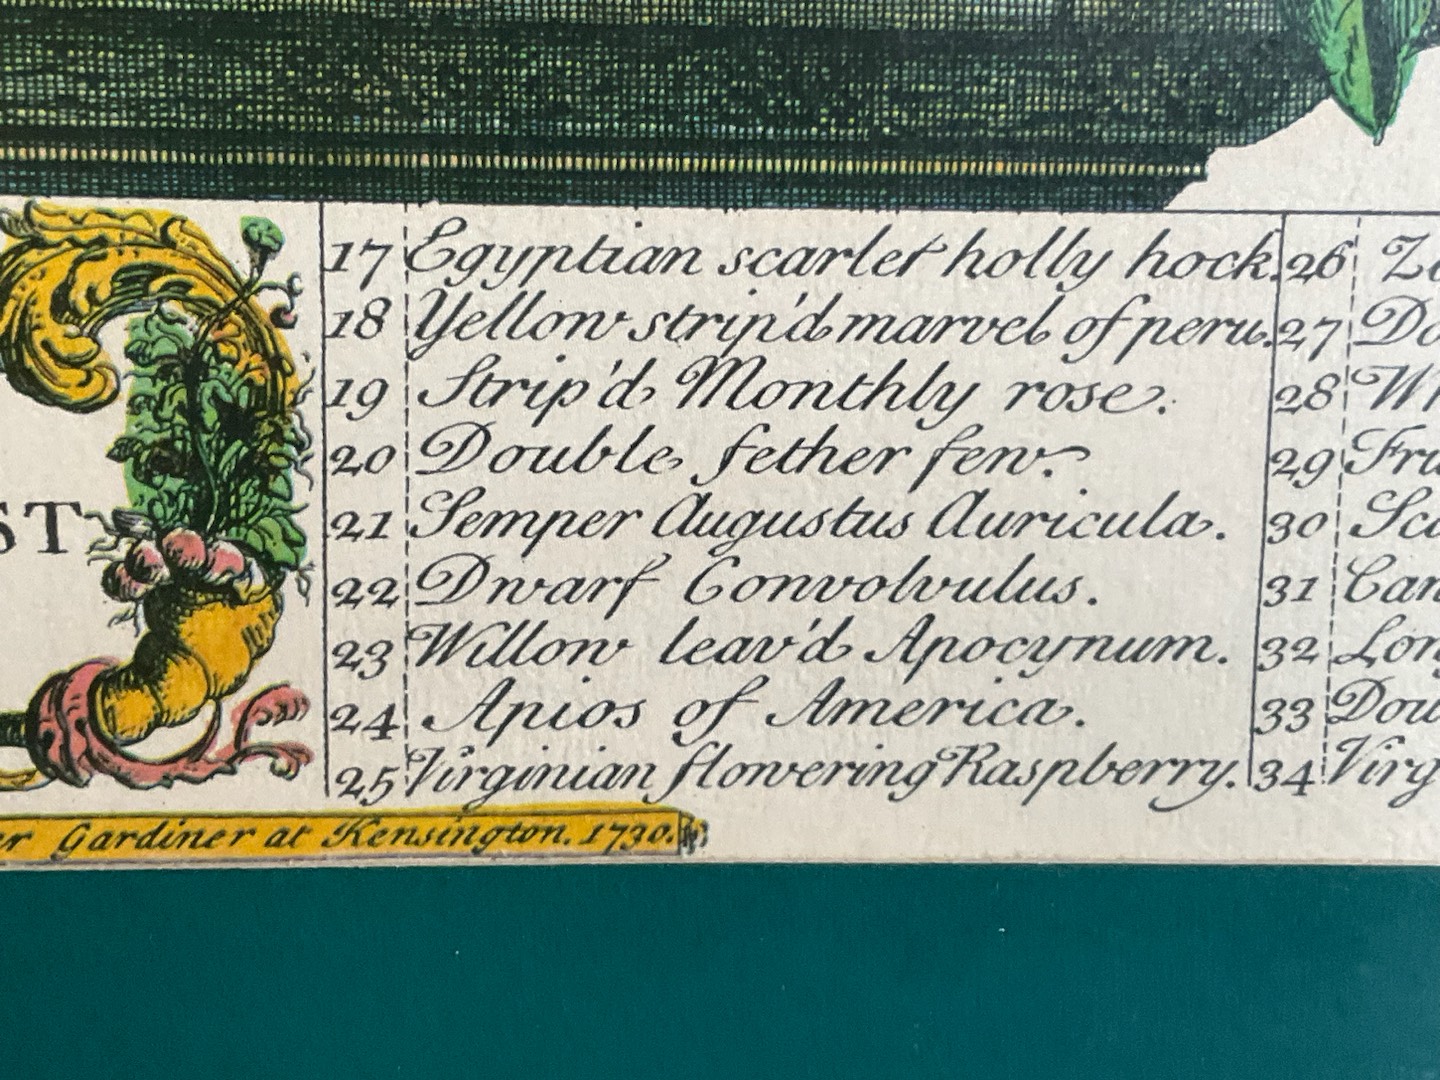 ST
17 Egyptian scarlet holly hock.
18 Yellow strip'd marvel of peru.
19 Strip'd Monthly rose.
20 Double fether few.
21 Semper Augustus Auricula.
22 Dwarf Convolvulus.
23 Willow leav'd Apocynum.
24 Apios of America.
25 Virginian flowering Raspberry.
26
27
28
29
30
31
32
33
34
er Gardiner at Kensington. 1730.